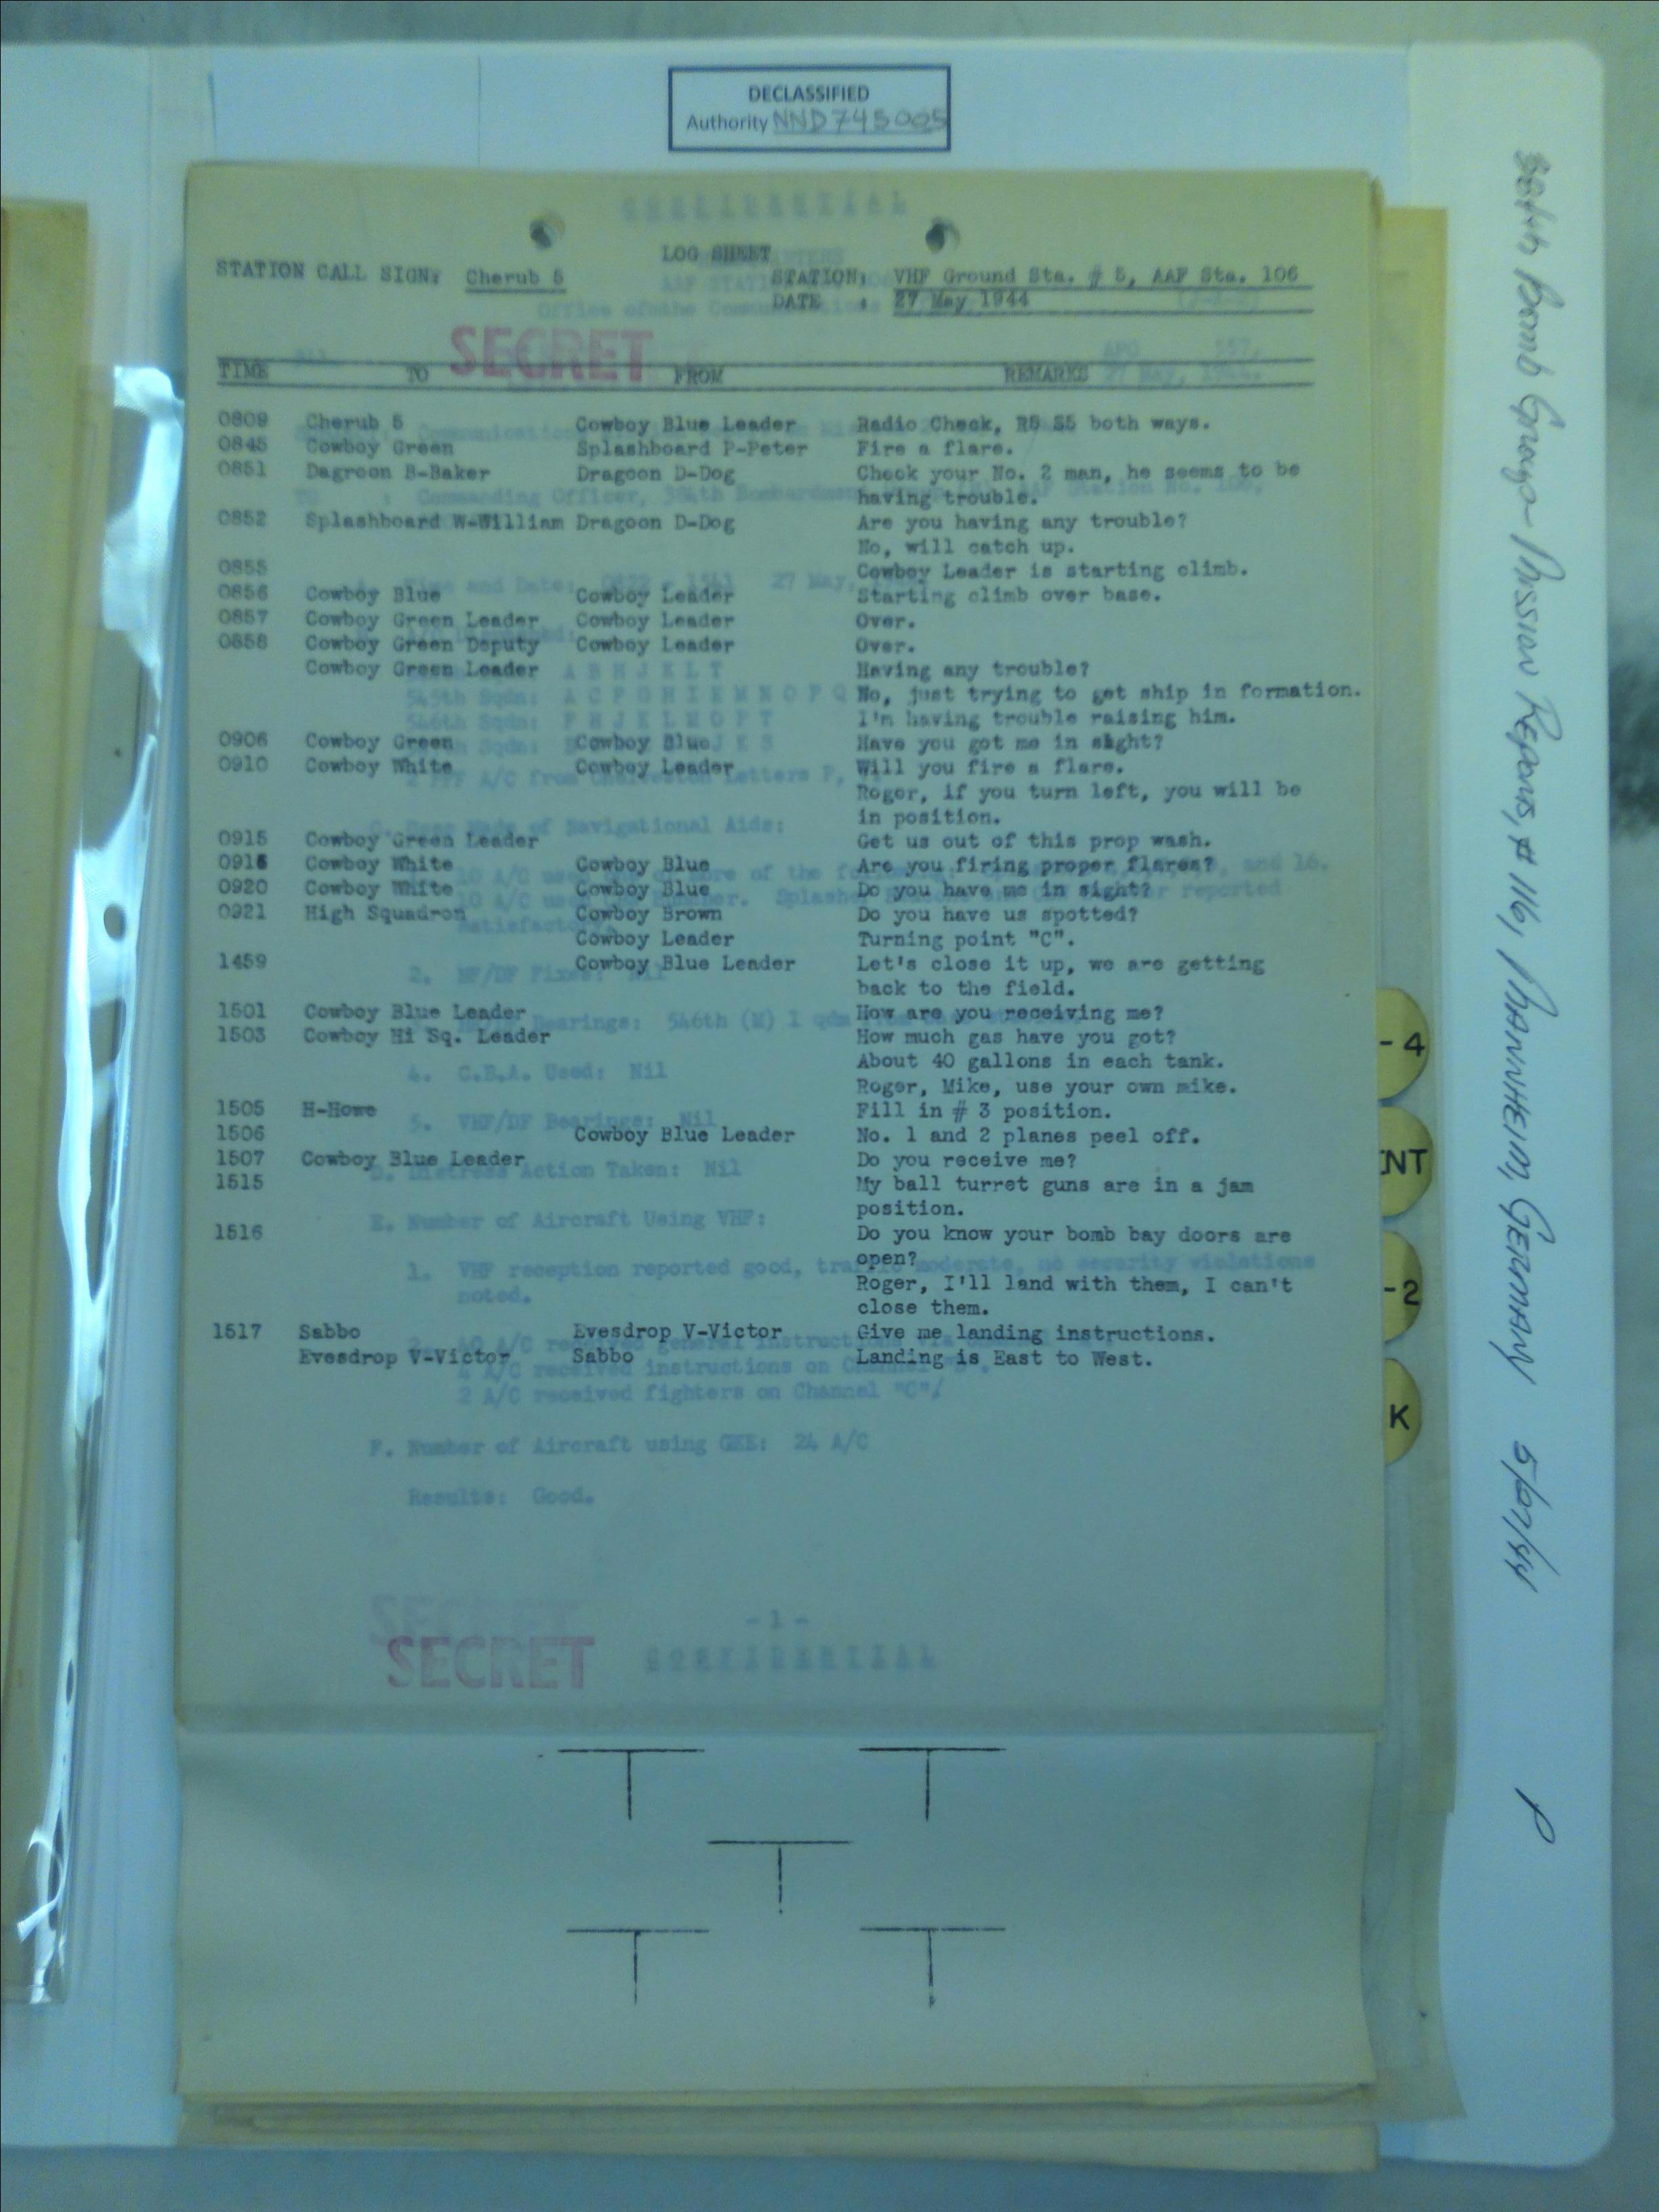 DECLASSIFIED
Authority NND745005
CONFIDENTIAL
LOG SHEET
STATION CALL SIGN: Cherub 5 STATION: VHF Ground Sta. # 5, AAF Sta. 106
DATE : 27 May 1944
SECRET
TIME TO FROM REMARKS
0809 Cherub 5 Cowboy Blue Leader Radio Check, R5 S5 both ways.
0845 Cowboy Green Splashboard P-Peter Fire a flare.
0851 Dagroon B-Baker Dragoon D-Dog Check your No. 2 man, he seems to be
having trouble.
0852 Splashboard W-William Dragoon D-Dog Are you having any trouble?
No, will catch up.
0855 Cowboy Leader is starting climb.
0856 Cowboy Blue Cowboy Leader Starting climb over base.
0857 Cowboy Green Leader Cowboy Leader Over.
0858 Cowboy Green Deputy Cowboy Leader Over.
Cowboy Green Leader Having any trouble?
No, just trying to get ship in formation.
I'm having trouble raising him.
0906 Cowboy Green Cowboy Blue Have you got me in sight?
0910 Cowboy White Cowboy Leader Will you fire a flare.
Roger, if you turn left, you will be
in position.
0915 Cowboy Green Leader Get us out of this prop wash.
0916 Cowboy White Cowboy Blue Are you firing proper flares?
0920 Cowboy White Cowboy Blue Do you have me in sight?
0921 High Squadron Cowboy Brown Do you have us spotted?
Cowboy Leader Turning point "C".
1459 Cowboy Blue Leader Let's close it up, we are getting
back to the field.
1501 Cowboy Blue Leader How are you receiving me?
1503 Cowboy Hi Sq. Leader How much gas have you got?
About 40 gallons in each tank.
Roger, Mike, use your own mike.
1505 H-Howe Fill in # 3 position.
1506 Cowboy Blue Leader No. 1 and 2 planes peel off.
1507 Cowboy Blue Leader Do you receive me?
1515 My ball turret guns are in a jam
position.
1516 Do you know your bomb bay doors are
open?
Roger, I'll land with them, I can't
close them.
1517 Sabbo Evesdrop V-Victor Give me landing instructions.
Evesdrop V-Victor Sabbo Landing is East to West.
2 A/C received fighters on Channel "C"/
F. Number of Aircraft using GEE: 24 A/C
Results: Good.
SECRET
- 1 -
SECRET
CONFIDENTIAL
384th Bomb Group - Mission Reports, # 116, MANNHEIM, GERMANY 5/27/44 P
-4
INT
-2
K